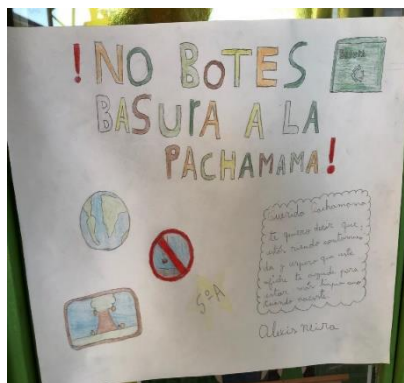 !NO BOTES
BASURA A LA
PACHAMAMA!
5ºA
Querido Pachamama
te quiero decir que,
estás siendo contamina
da y espero que este
afiche te ayude para
estar más limpia
Alexis Neira